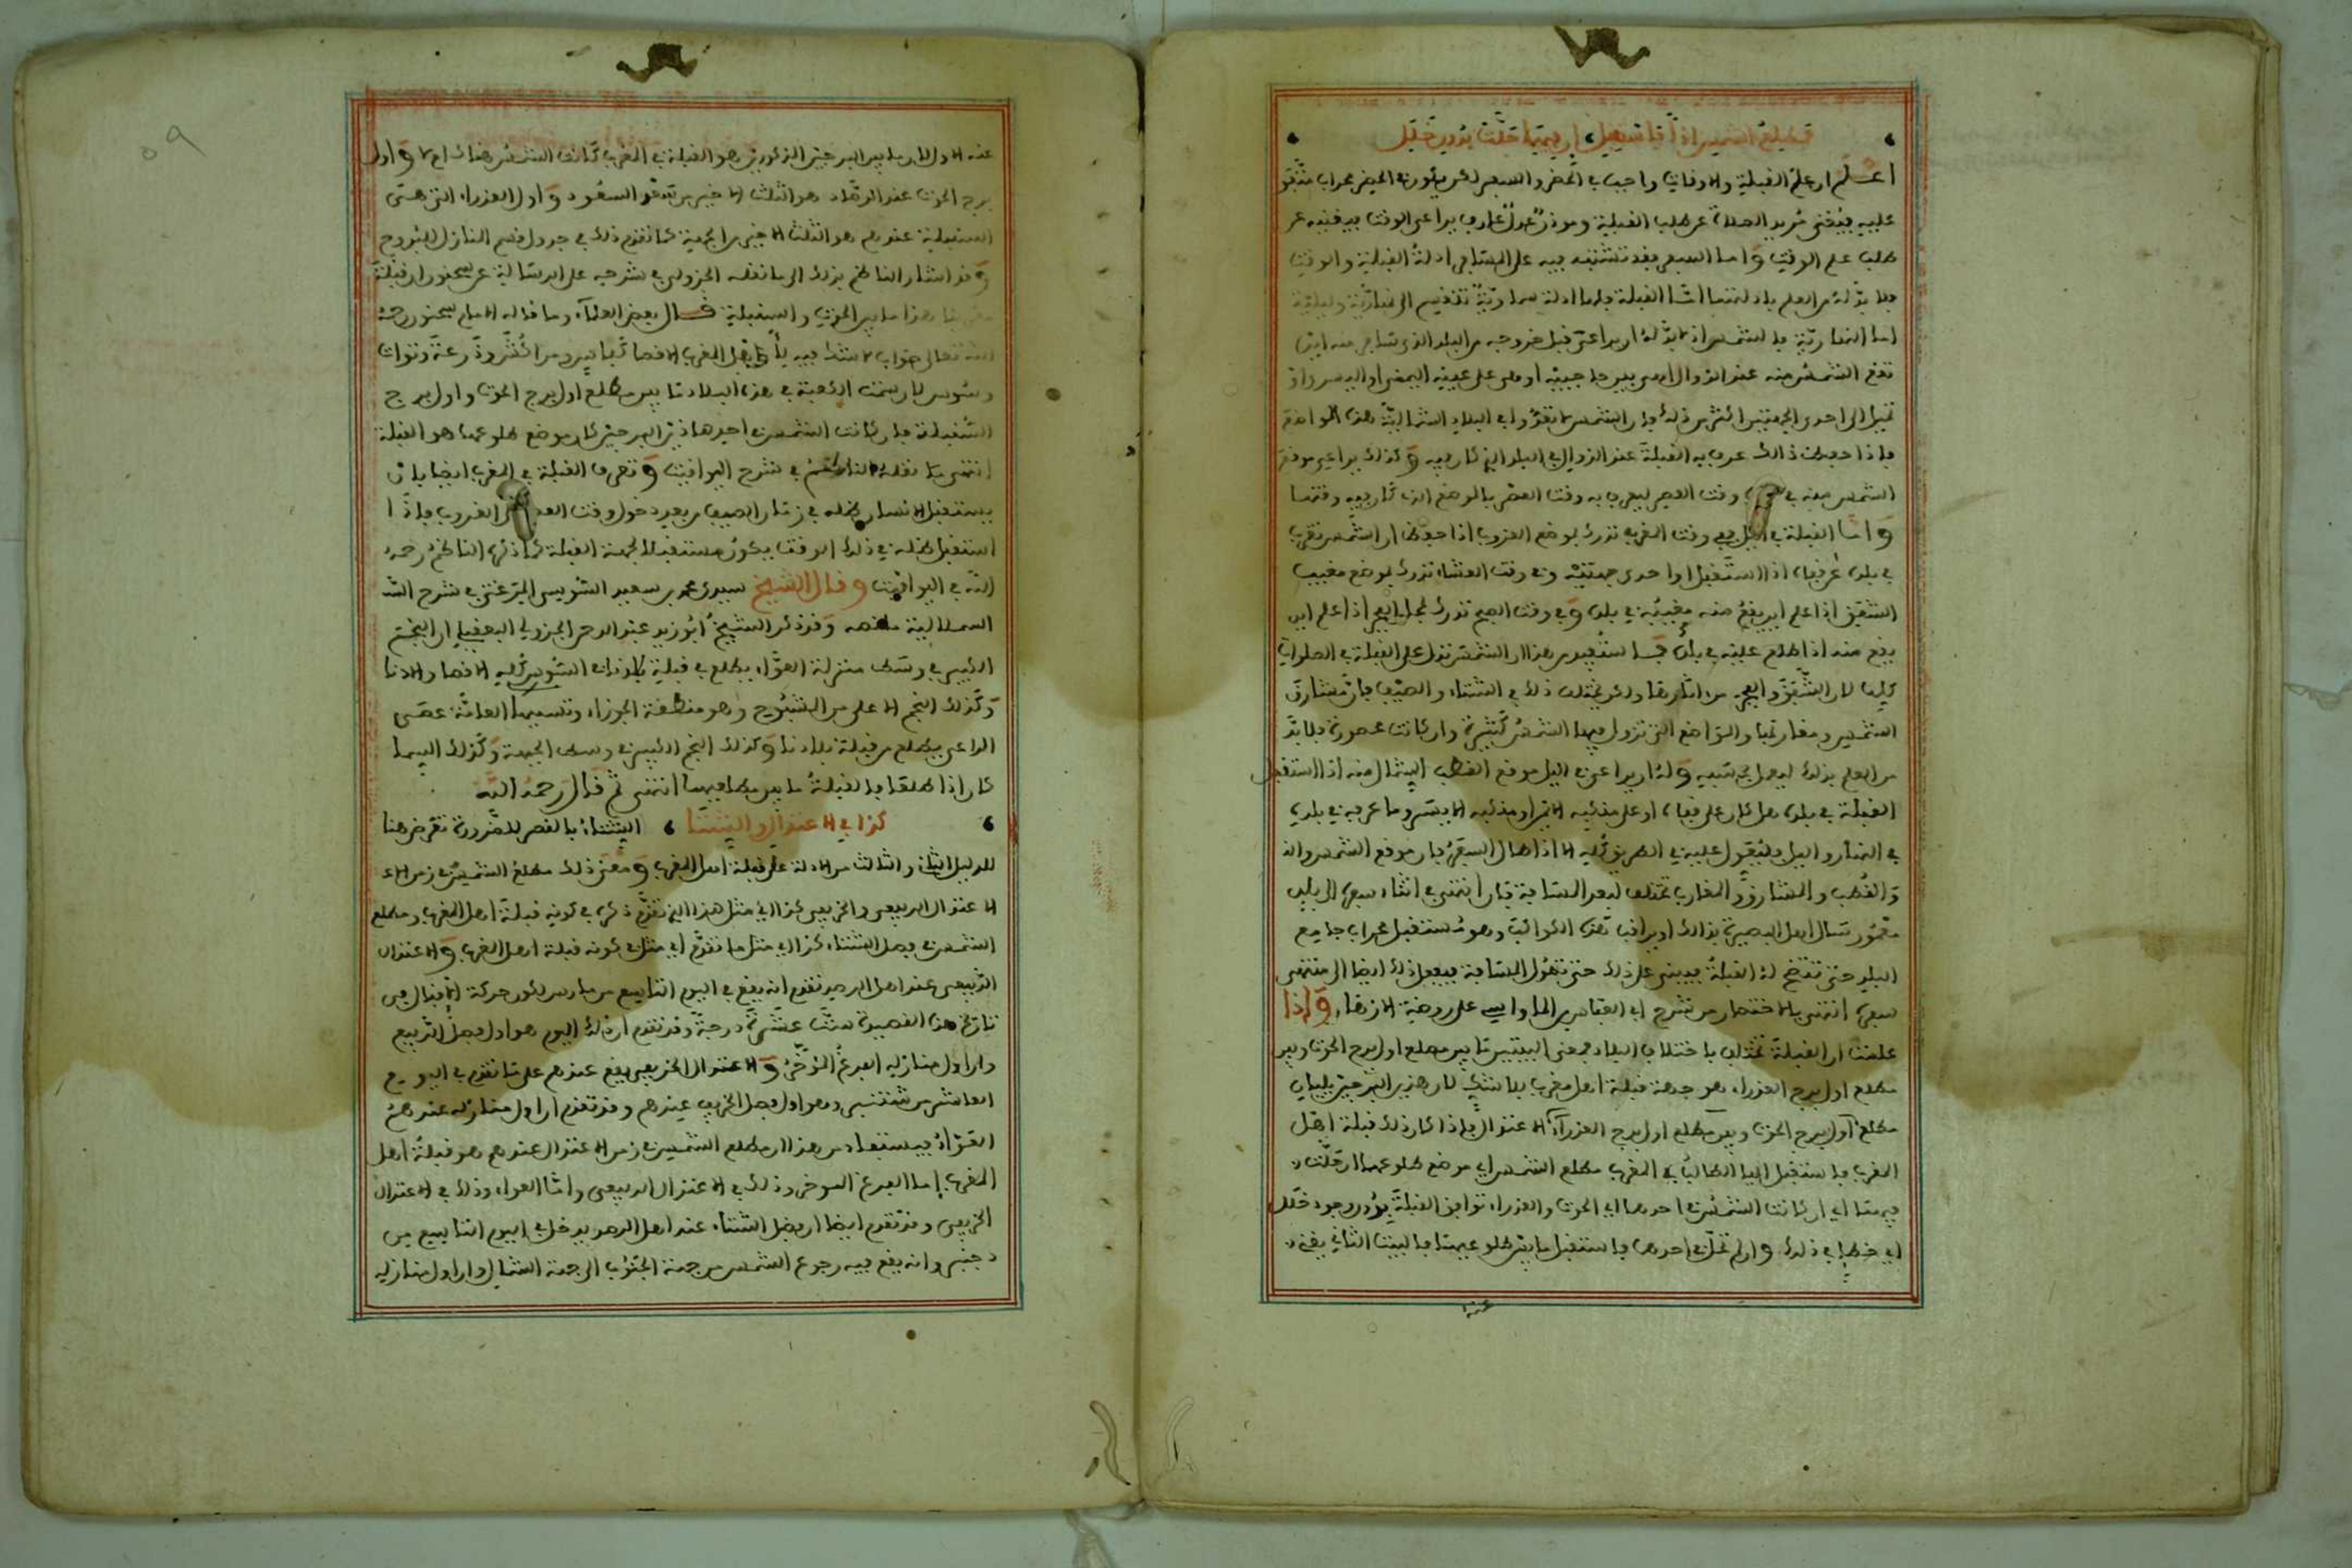 فمطلع الشمس اذا ما تستقبل ان فيهما حلت بدون خلل
اعلم ان علم القبلة والاوقات واجب في الحضر والسفر لكن يكون في الحضر محراب متفق
عليه فيغني مريد الصلاة عن طلب القبلة وموذن عدل عارف يراعي الوقت فيغنيه عن
طلب علم الوقت واما السفر فقد تشتبه فيه على المسافر ادلة القبلة والوقت
فلا بد له من العلم بادلتهما اما القبلة فلها ادلة سماوية تنقسم الى نهارية وليلية
اما النهارية فالشمس اذ لا بد له ان يراعي قبل خروجه من البلد الذي سافر منه اين
تقع الشمس منه عند الزوال اهي بين حاجبيه او هي على عينه اليمنى او اليسرى او
تميل الى احدى الجهتين اكثر من ذلك فان الشمس لا تعدوا في البلاد الشمالية هذه المواضع
فاذا حفظ ذلك عرف به القبلة عند الزوال في البلد الذي كان فيه وكذلك يراعي موقع
الشمس منه في وقت العصر ليعرف به وقت العصر بالموضع الذي كان فيه وقتها
واما القبلة في الليل ففي وقت المغرب تدرك بموضع الغروب اذا حفظ ان الشمس تغرب
في بلده عن قفاه اذا استقبل او احدى جهتيه وفي وقت العشاء تدرك بموضع مغيب
الشفق اذا علم اين يقع منه مغيبه في بلده وفي وقت الصبح تدرك بمحل الفجر اذا علم اين
يقع منه اذا طلع عليه في بلده فاستفيد من هذا ان الشمس تدل على القبلة في الصلوات
كلها لان الشفق والفجر من اثارها ولكن تختلف ذلك في الشتاء والصيف فان مشارق
الشمس ومغاربها والمواضع التي تزول فيها الشمس كثيرة وان كانت محصورة فلا بد
من العلم بذلك ليعمل بحسبه وله ان يراعي في الليل موقع القطب الشمالي منه اذا استقبل
القبلة في بلده هل كان على قفاه او على منكبه الايمن او منكبه الايسر وما عرفه في بلده
في النهار والليل فليعول عليه في الطريق كله الا اذا طال السفر فان موقع الشمس
والقطب والمشارق والمغارب تختلف لبعد المسافة فان انتهى في اثناء سفره الى بلد
معمور سال اهل البصيرة بذلك او يراقب هذه الكواكب وهو مستقبل محراب جامع
البلد حتى تتضح له القبلة فيبني على ذلك حتى تطول المسافة فيفعل ذلك ايضا الى منتهى
سفره انتهى باختصار من شرح ابي العباس الماواسي على روضة الازهار واذا
علمت ان القبلة تختلف باختلاف البلاد فمعنى البيتين ما بين مطلع اول برج الحوت وبين
مطلع اول برج العذراء هو جهة قبلة اهل مغرب بلا شك لان هذين البرجين يليان
مطلع اول برج الحوت وبين مطلع اول برج العذراء الاعتدال فاذا كان ذلك قبلة اهل
المغرب فاستقبل ايها الطالب في المغرب مطلع الشمس اي موضع طلوعها ان حلت
فيهما اي ان كانت الشمس في احدهما اي الحوت والعذراء توافق القبلة بدون وجود خلل
اي خطا في ذلك وان لم تحل في احدهما فاستقبل ما بين طلوعيهما فالبيت الثاني يغني
عنه
عنه الاول لان ما بين البرجين المذكورين هو القبلة في المغرب كانت الشمس هناك ام لا واول
برج الحوت عند الرصاد هو الثلث الاخير من سعد السعود واول العذراء التي هي
السنبلة عندهم هو الثلث الاخير من الجبهة كما تقدم ذلك في جدول قسم المنازل للبروج
وقد اشار الناظم بذلك الى ما نقله الجزولي في شرحه على الرسالة عن سحنون ان قبلة
مغربنا هذا ما بين الحوت والسنبلة قال بعض العلماء وما قاله الامام سحنون رحمه
الله تعالى صواب لا شك فيه لاهل المغرب الاقصا كفاس ومراكش ودرعة وتوات
وسوس لان سمت الكعبة في هذه البلاد ما بين مطلع اول برج الحوت واول برج
السنبلة فان كانت الشمس في احد هاذين البرجين كان موضع طلوعها هو القبلة
انتهى ما نقله الناظم في شرح اليواقيت وتعرف القبلة في المغرب ايضا بان
يستقبل الانسان ظله في زمان الصيف من بعد دخول وقت العصر الى الغروب فاذا
استقبل ظله في ذلك الوقت يكون مستقبلا لجهة القبلة كما ذكره الناظم رحمه
الله في اليواقيت وقال الشيخ سيدي محمد بن سعيد السوسي المرغتي في شرح
السملالية ما نصه وقد ذكر الشيخ ابو زيد عبد الرحمن الجزولي البعقيلي ان النجم
الكبير في وسط منزلة العواء يطلع في قبلة بلادنا السوس كله الاقصا والادنا
وكذلك النجم الاعلى من الشبوح وهو منطقة الجوزاء وتسميها العامة عصى
الراعي يطلع من قبلة بلادنا وكذلك النجم الكبير في وسط الجبهة وكذلك
كان اذا طلعا فالقبلة ما بين مطلعيهما انتهى ثم قال رحمه الله
كذا في الاعتدال والشتا الشتاء بالقصر للضرورة تعرض هنا
للدليل الثاني والثالث من الادلة على قبلة اهل المغرب ومعنى ذلك مطلع الشمس في زمن
الاعتدال الربيعي والخريفي كذا اي مثل هذا الذي تقدم ذكره في كونه قبلة اهل المغرب ومطلع
الشمس في فصل الشتاء كذا اي مثل ما تقدم اي مثل في كونه قبلة اهل المغرب والاعتدال
الربيعي عند اهل الرصد تقدم انه يقع في اليوم التاسع من مارس لكون حركة الاقبال في
تاريخ هذه القصيدة ست عشرة درجة وقد تقدم ان ذلك اليوم هو اول فصل الربيع
وان اول منازله الفرغ المؤخر والاعتدال الخريفي يقع عندهم على ما تقدم في اليوم
العاشر من شتنبر وهو اول فصل الخريف عندهم وقد تقدم ان اول منازله عندهم
العواء فيستفاد من هذا ان مطلع الشمس في زمن الاعتدال عندهم هو قبلة اهل
المغرب اما الفرغ الموخر وذلك في الاعتدال الربيعي واما العواء وذلك في الاعتدال
الخريفي وقد تقدم ايضا ان فصل الشتاء عند اهل الرصد يدخل في اليوم التاسع من
دجنبر وانه يقع فيه رجوع الشمس من جهة الجنوب الى جهة الشمال وان اول منازله